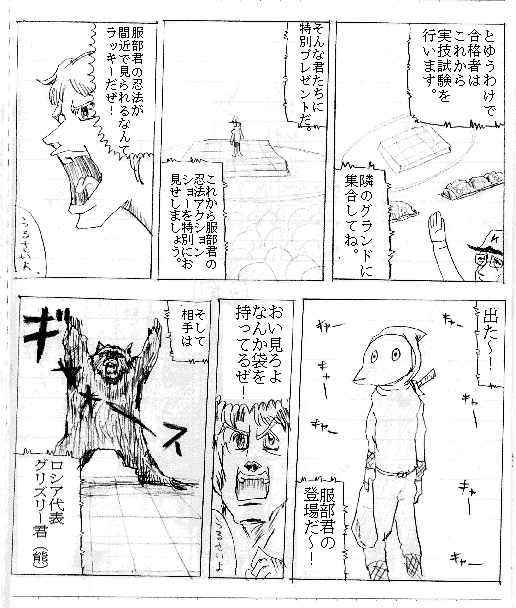 とゆうわけで
合格者は
これから
実技試験を
行います。
隣のグランドに
集合してね。
そんな君たちに
特別プレゼントだ。
これから服部君の
忍法アクション
ショーを特別にお
見せしましょう。
服部君の忍法が
間近で見られるなんて
ラッキーだぜ！
うるさいよ
出た〜！
キャー
キャー
キャー
キャー
キャー
キャー
キャー
服部君の
登場だ〜！
おい見ろよ
なんか袋を
持ってるぜ！
うるさいよ
そして
相手は
ギャオース
ロシア代表
グリズリー君
熊